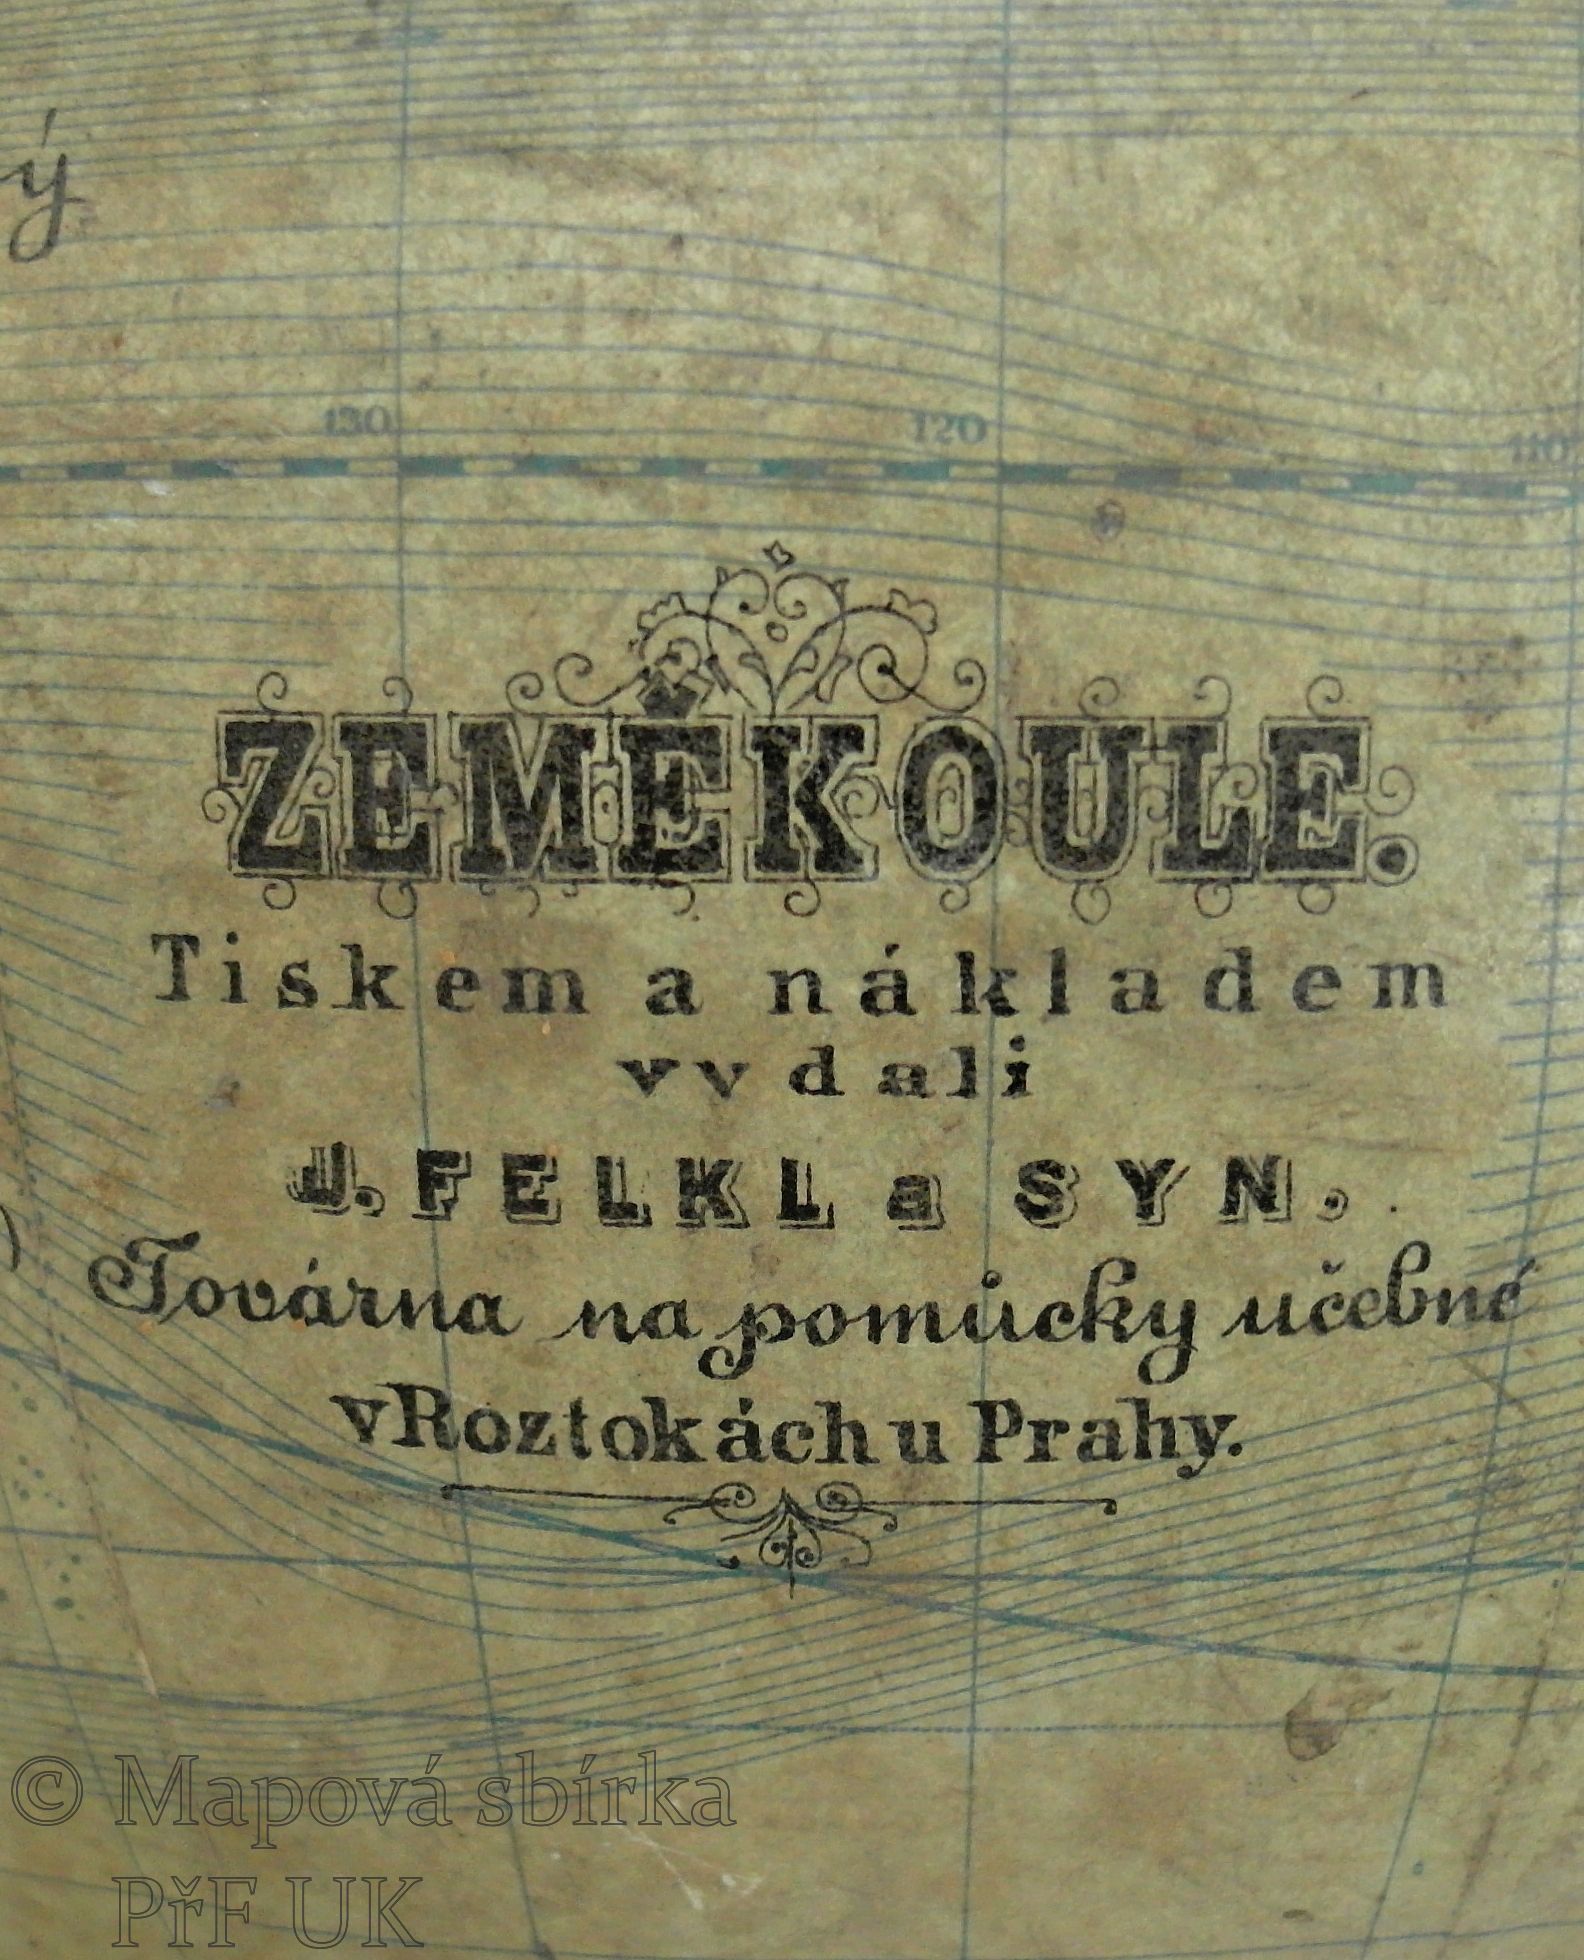 ý
130 120 110
ZEMĚKOULE.
Tiskem a nákladem
vydali
J. FELKL a SYN.
Továrna na pomůcky učebné
v Roztokách u Prahy.
© Mapová sbírka
PřF UK